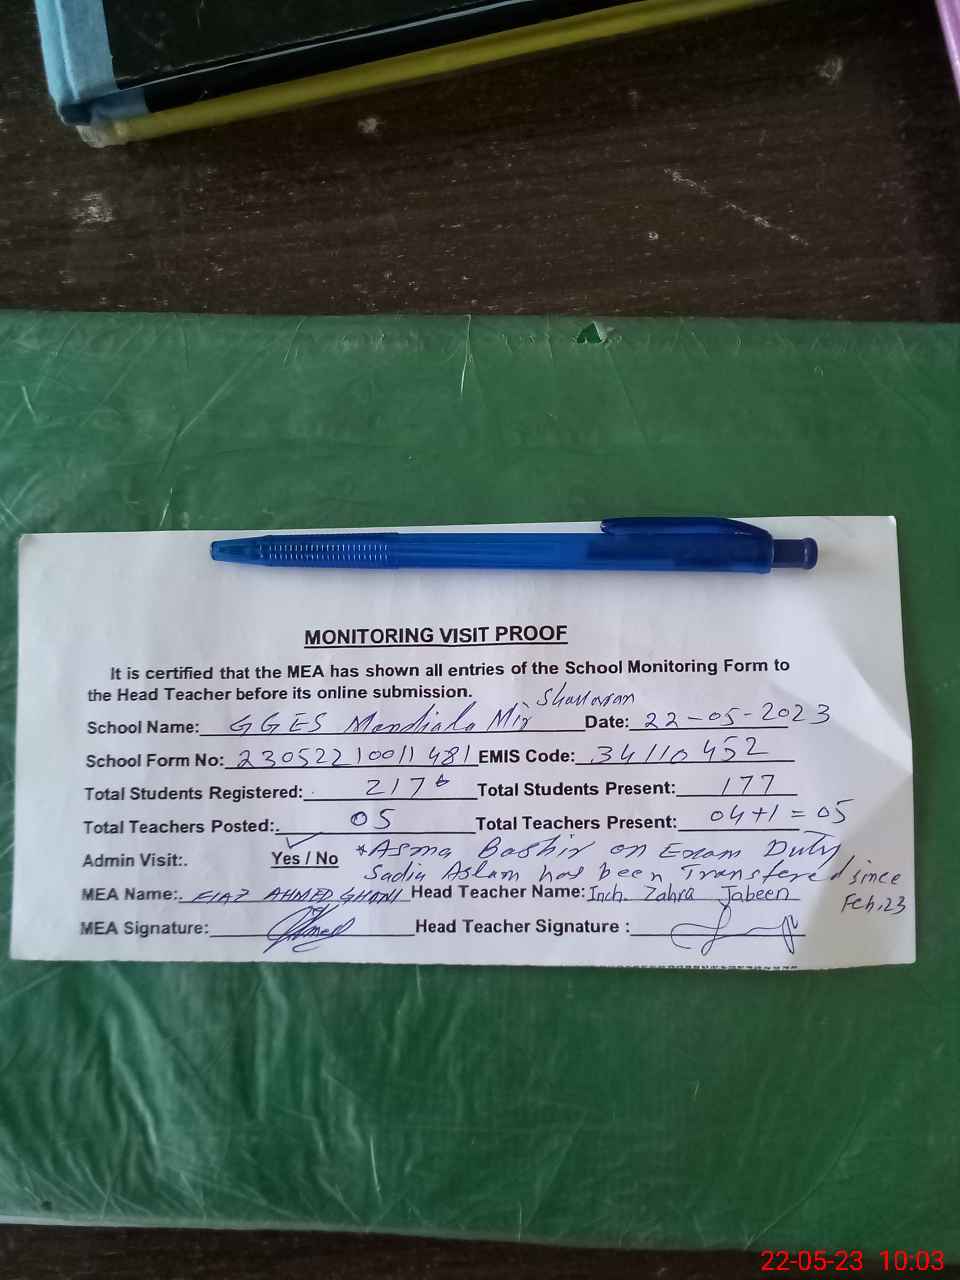 MONITORING VISIT PROOF
It is certified that the MEA has shown all entries of the School Monitoring Form to
the Head Teacher before its online submission.
School Name: GGES Mandiala Mir Date: 22-05-2023
School Form No: 2305221001 1481 EMIS Code: 34110452
Total Students Registered: 217 Total Students Present: 177
Total Teachers Posted: 05 Total Teachers Present: 04+1=05
Admin Visit:. Yes / No *Asma Bashir on Exam Duty
Sadia Aslam has been Transfered since
Feb,23
MEA Name:. FIAZ AHMED GHANI Head Teacher Name: Inch. Zahra Jabeen
MEA Signature: Head Teacher Signature :
22-05-23 10:03